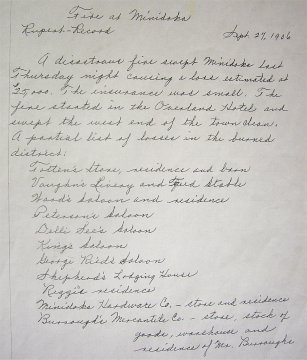 Fire at Minidoka
Rupert-Record Sept 27, 1906
A disastrous fire swept Minidoka last
Thursday night causing a loss estimated at
25,000. The insurance was small. The
fire started in the Overland Hotel and
swept the west end of the town clean.
A partial list of losses in the burned
district:
Totten's Store, residence and barn
Vaughn's Livery and Feed Stable
Wood's Saloon and residence
Peterson's Saloon
Delli Lee's Saloon
Kings Saloon
George Rield's Saloon
Shepherd's Lodging House
Riggs residence
Minidoka Hardware Co. - store and residence
Burrough's Mercantile Co. - store, stock of
goods, warehouse and
residence of Mr. Burroughs